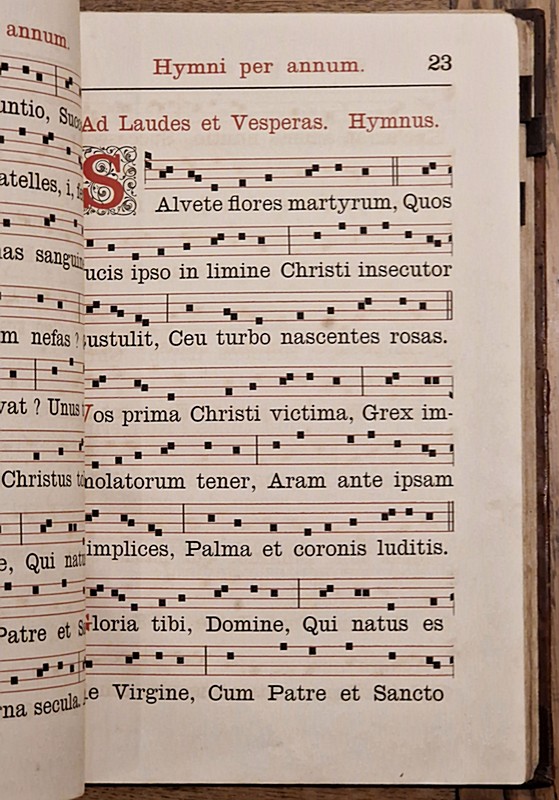 annum.
untio, Suc
atelles, i,
as sanguin
m nefas ?
vat ? Unus
Christus
e, Qui nat
Patre et S
rna secula.
Hymni per annum. 23
Ad Laudes et Vesperas. Hymnus.
SAlvete flores martyrum, Quos
ucis ipso in limine Christi insecutor
ustulit, Ceu turbo nascentes rosas.
Vos prima Christi victima, Grex im-
molatorum tener, Aram ante ipsam
implices, Palma et coronis luditis.
Gloria tibi, Domine, Qui natus es
e Virgine, Cum Patre et Sancto